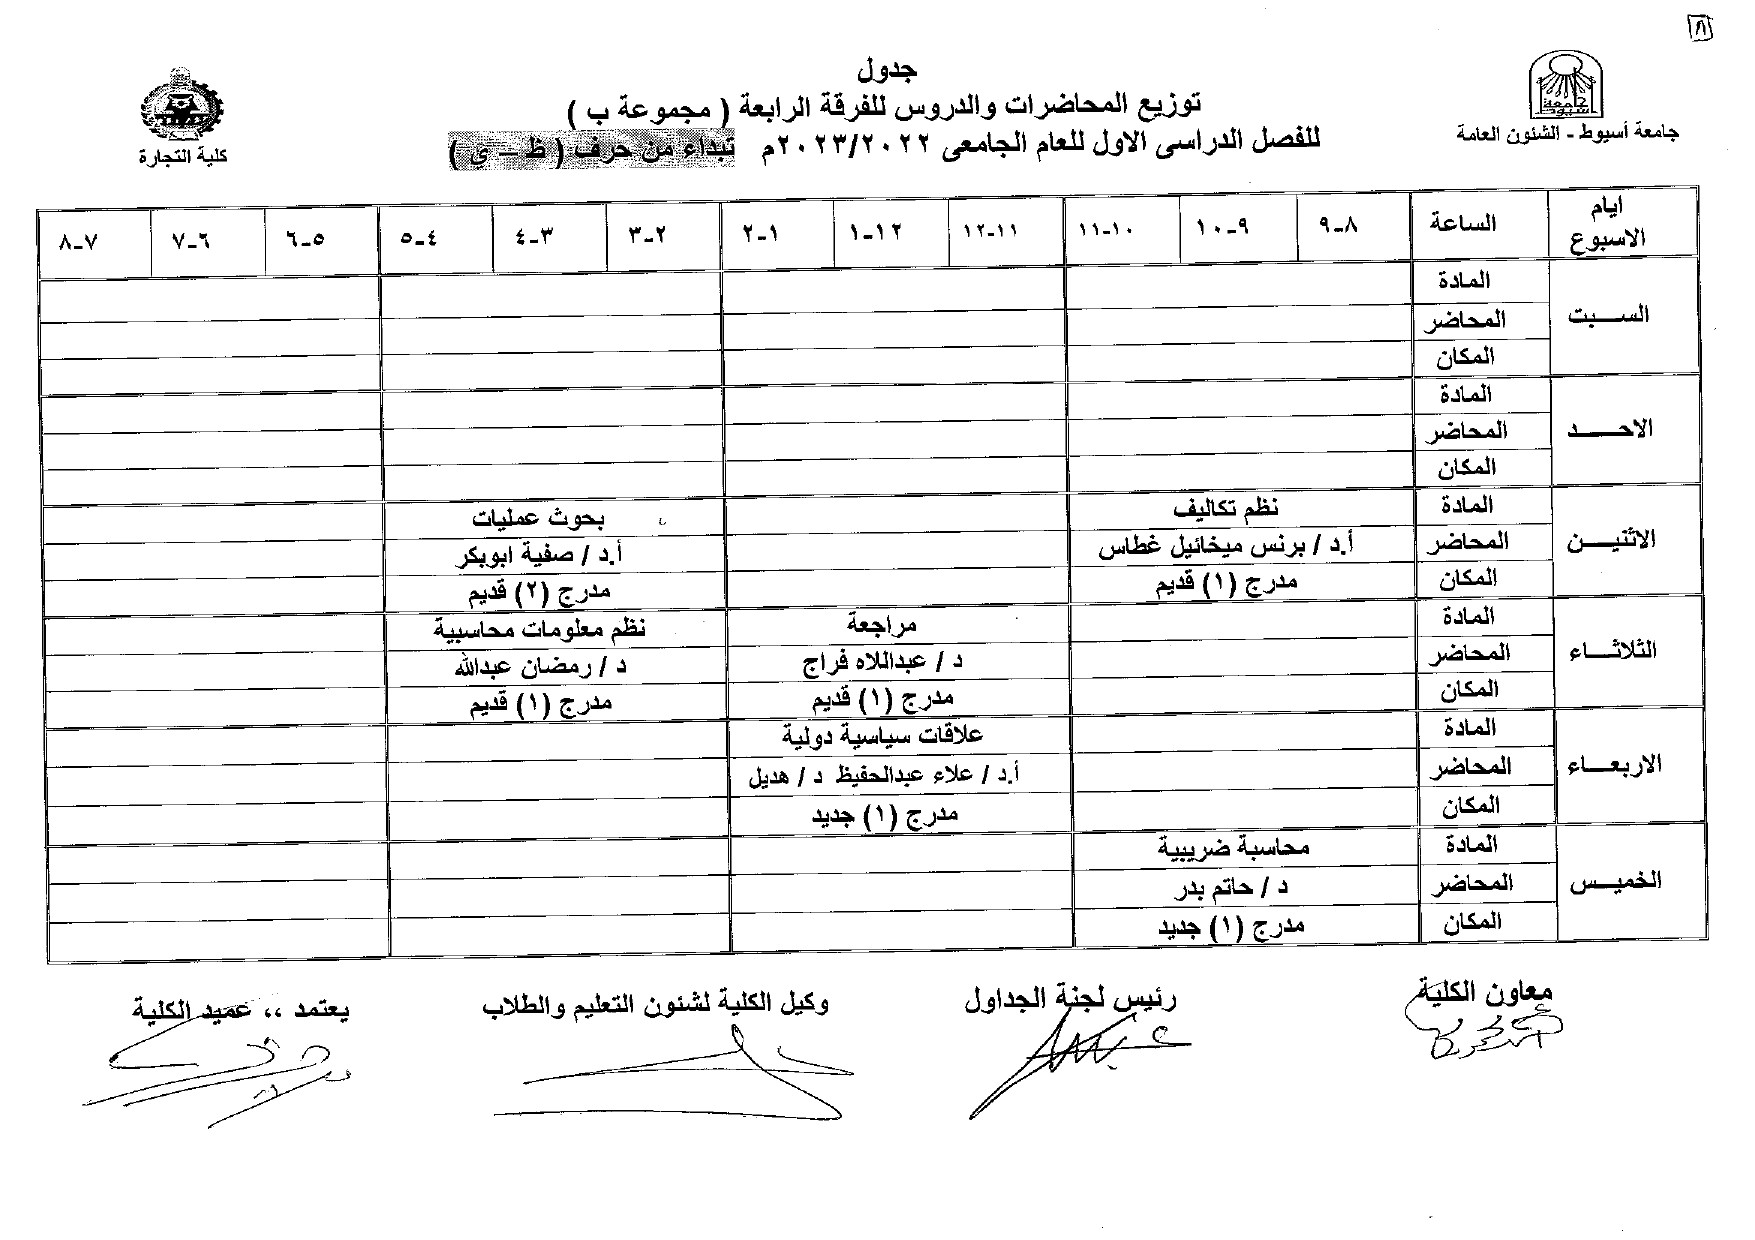 [٨]
جدول
توزيع المحاضرات والدروس للفرقة الرابعة ( مجموعة ب )
للفصل الدراسى الاول للعام الجامعى ٢٠٢٣/٢٠٢٢م تبداء من حرف ( ظ – ى )
جامعة أسيوط - الشئون العامة
كلية التجارة
ايام الاسبوع الساعة ٨-٩ ٩-١٠ ١٠-١١ ١١-١٢ ١٢-١ ١-٢ ٢-٣ ٣-٤ ٤-٥ ٥-٦ ٦-٧ ٧-٨
السبت
المادة
المحاضر
المكان
الاحد
المادة
المحاضر
المكان
الاثنين
المادة نظم تكاليف بحوث عمليات
المحاضر أ.د / برنس ميخائيل غطاس أ.د / صفية ابوبكر
المكان مدرج (١) قديم مدرج (٢) قديم
الثلاثاء
المادة مراجعة نظم معلومات محاسبية
المحاضر د / عبداللاه فراج د / رمضان عبدالله
المكان مدرج (١) قديم مدرج (١) قديم
الاربعاء
المادة علاقات سياسية دولية
المحاضر أ.د / علاء عبدالحفيظ د / هديل
المكان مدرج (١) جديد
الخميس
المادة محاسبة ضريبية
المحاضر د / حاتم بدر
المكان مدرج (١) جديد
معاون الكلية رئيس لجنة الجداول وكيل الكلية لشئون التعليم والطلاب يعتمد ،، عميد الكلية